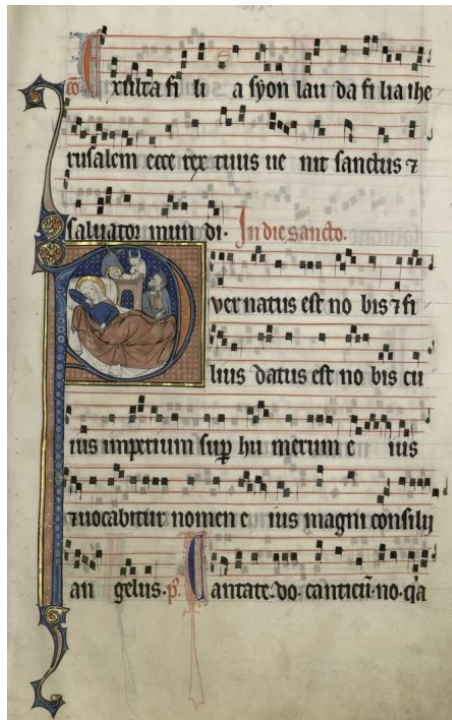 cō Exulta fi li a syon lau da fi lia ihe
rusalem ecce rex tuus ue nit sanctus ⁊
saluator mun di. In die sancto.
Puer natus est no bis ⁊ fi
lius datus est no bis cu
ius imperium sup hu merum e ius
⁊ uocabitur nomen e ius magni consilij
an gelus. p̄s. Cantate. do. canticū. no. q̄a